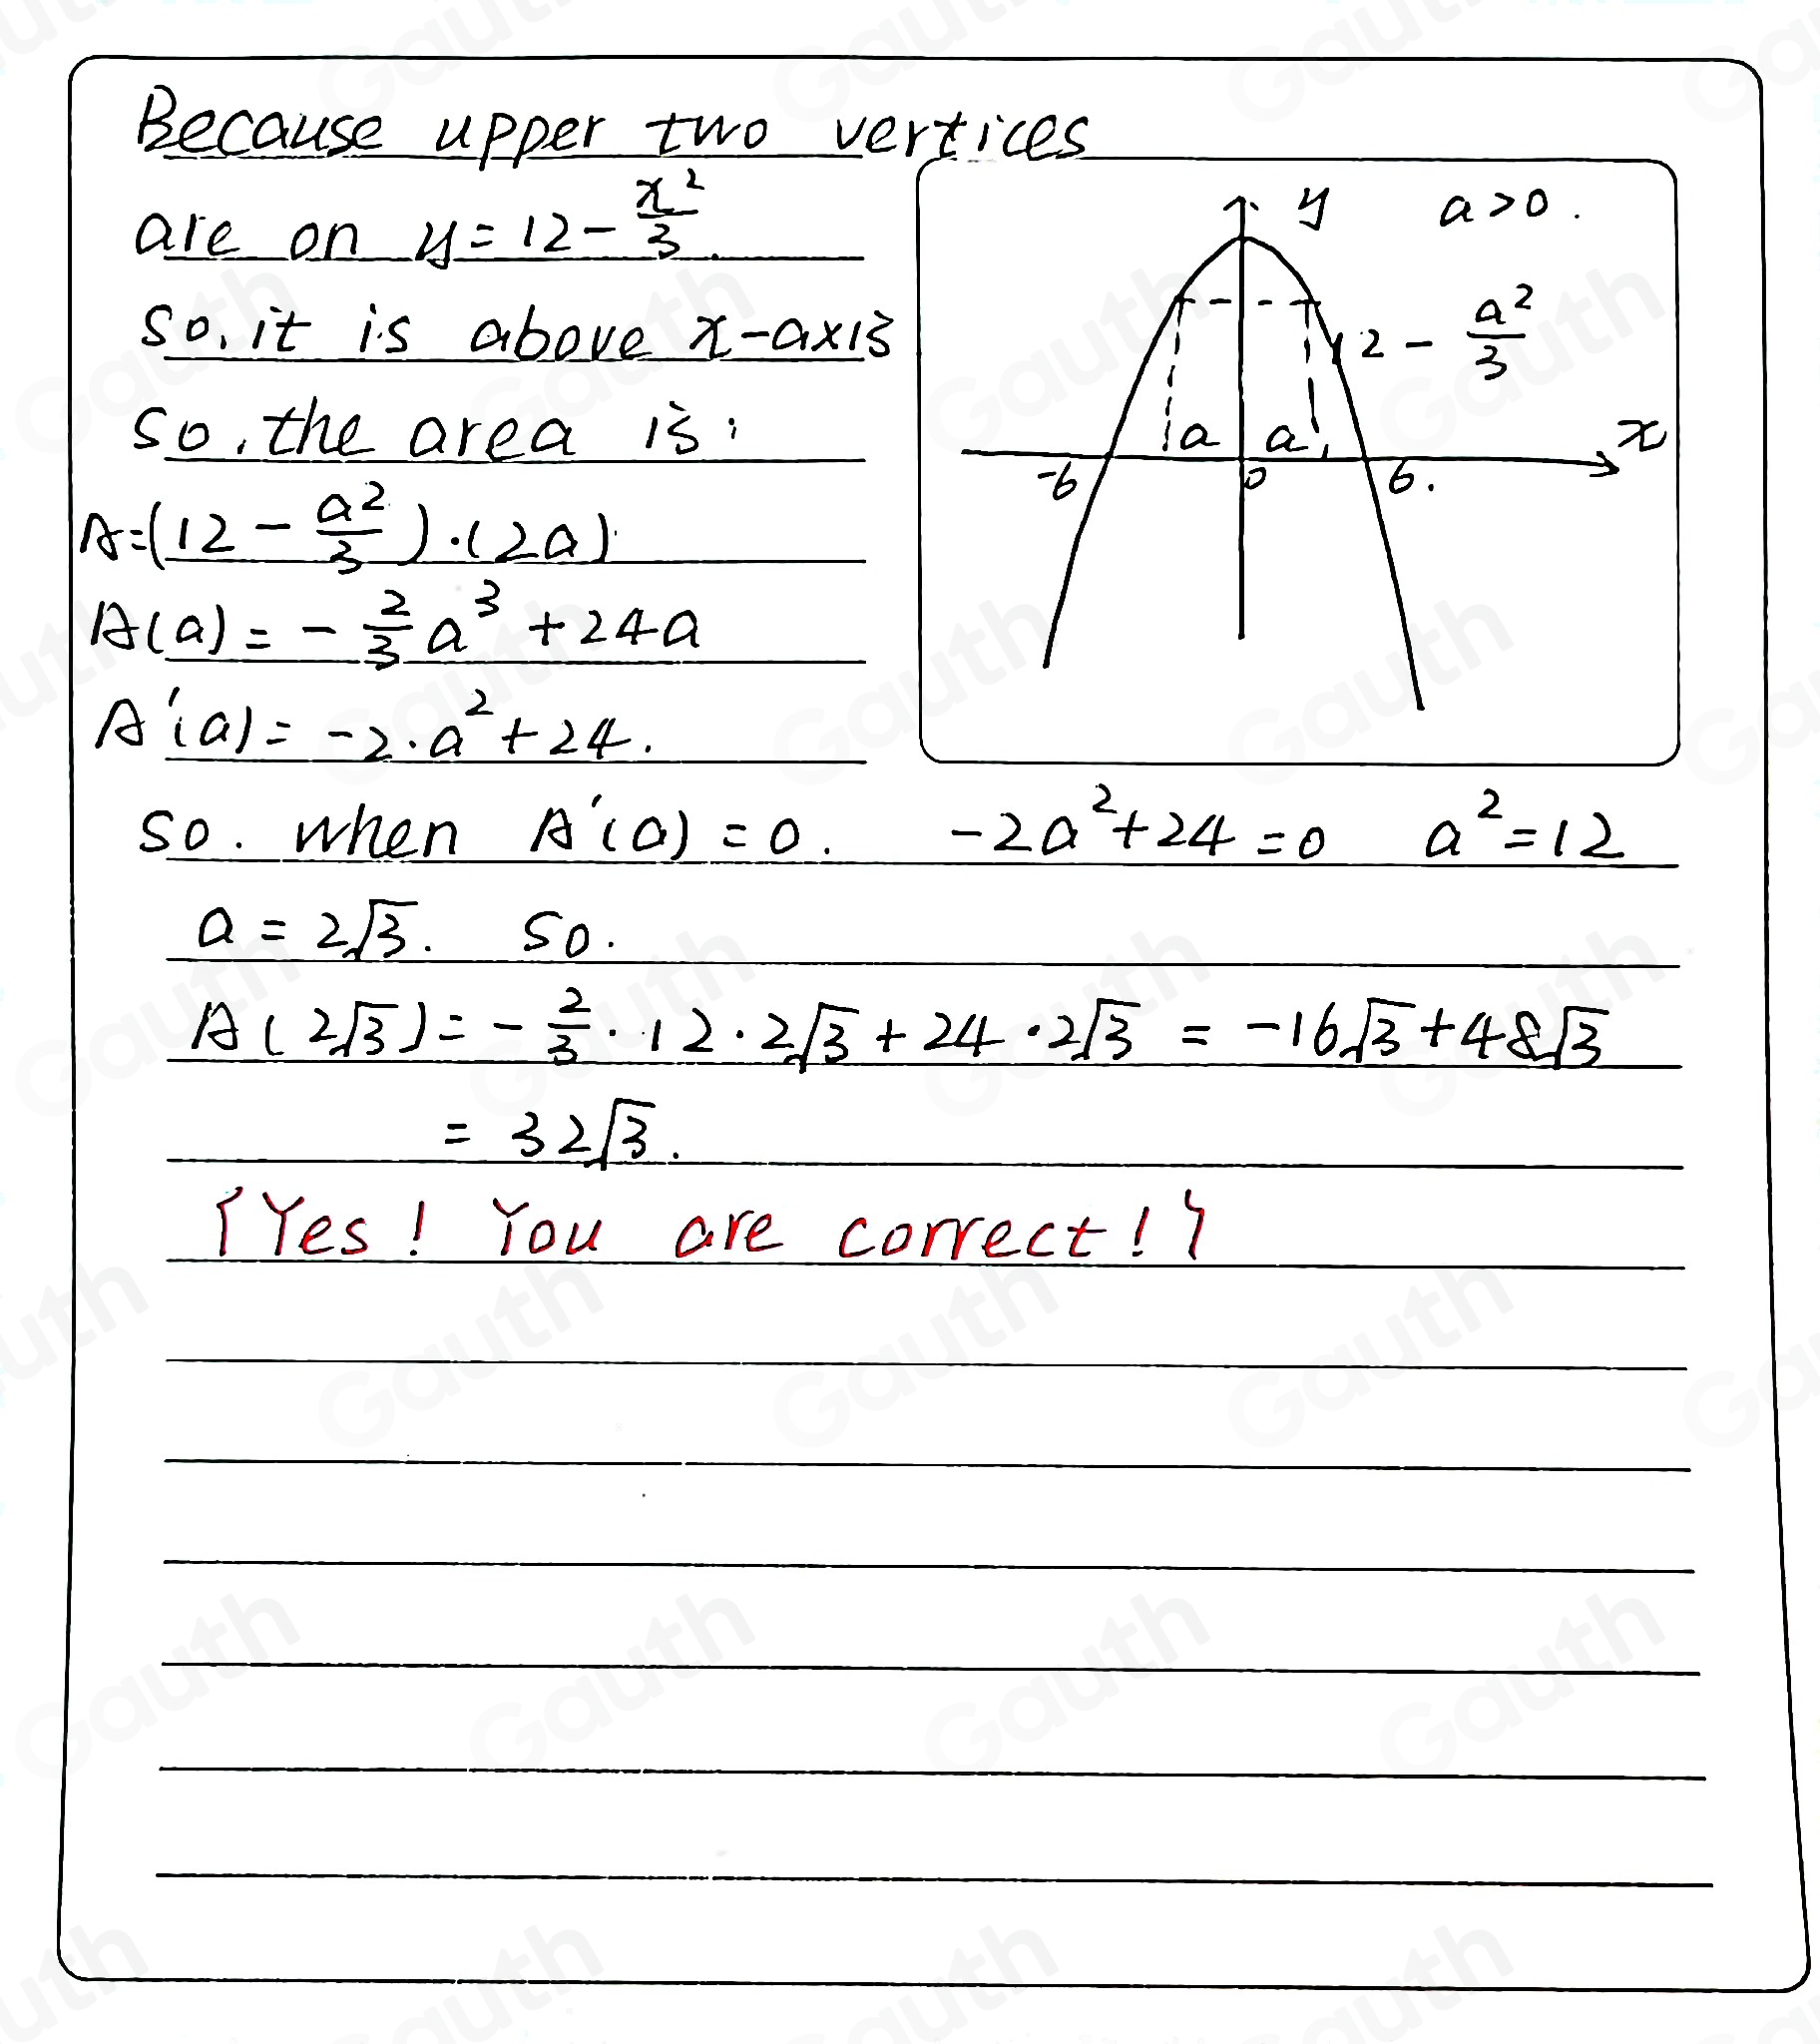 Because upper two vertices
are on y = 12 - x²/3.
so, it is above x-axis
so, the area is:
A = (12 - a²/3)·(2a)
A(a) = - 2/3 a³ + 24a
A'(a) = -2·a² + 24.
y a>0.
12 - a²/3
a a x
-6 0 6.
so. when A'(a) = 0. -2a² + 24 = 0 a² = 12
a = 2√3. so.
A(2√3) = - 2/3 · 12 · 2√3 + 24 · 2√3 = -16√3 + 48√3
= 32√3.
{Yes! You are correct!}
Gauth